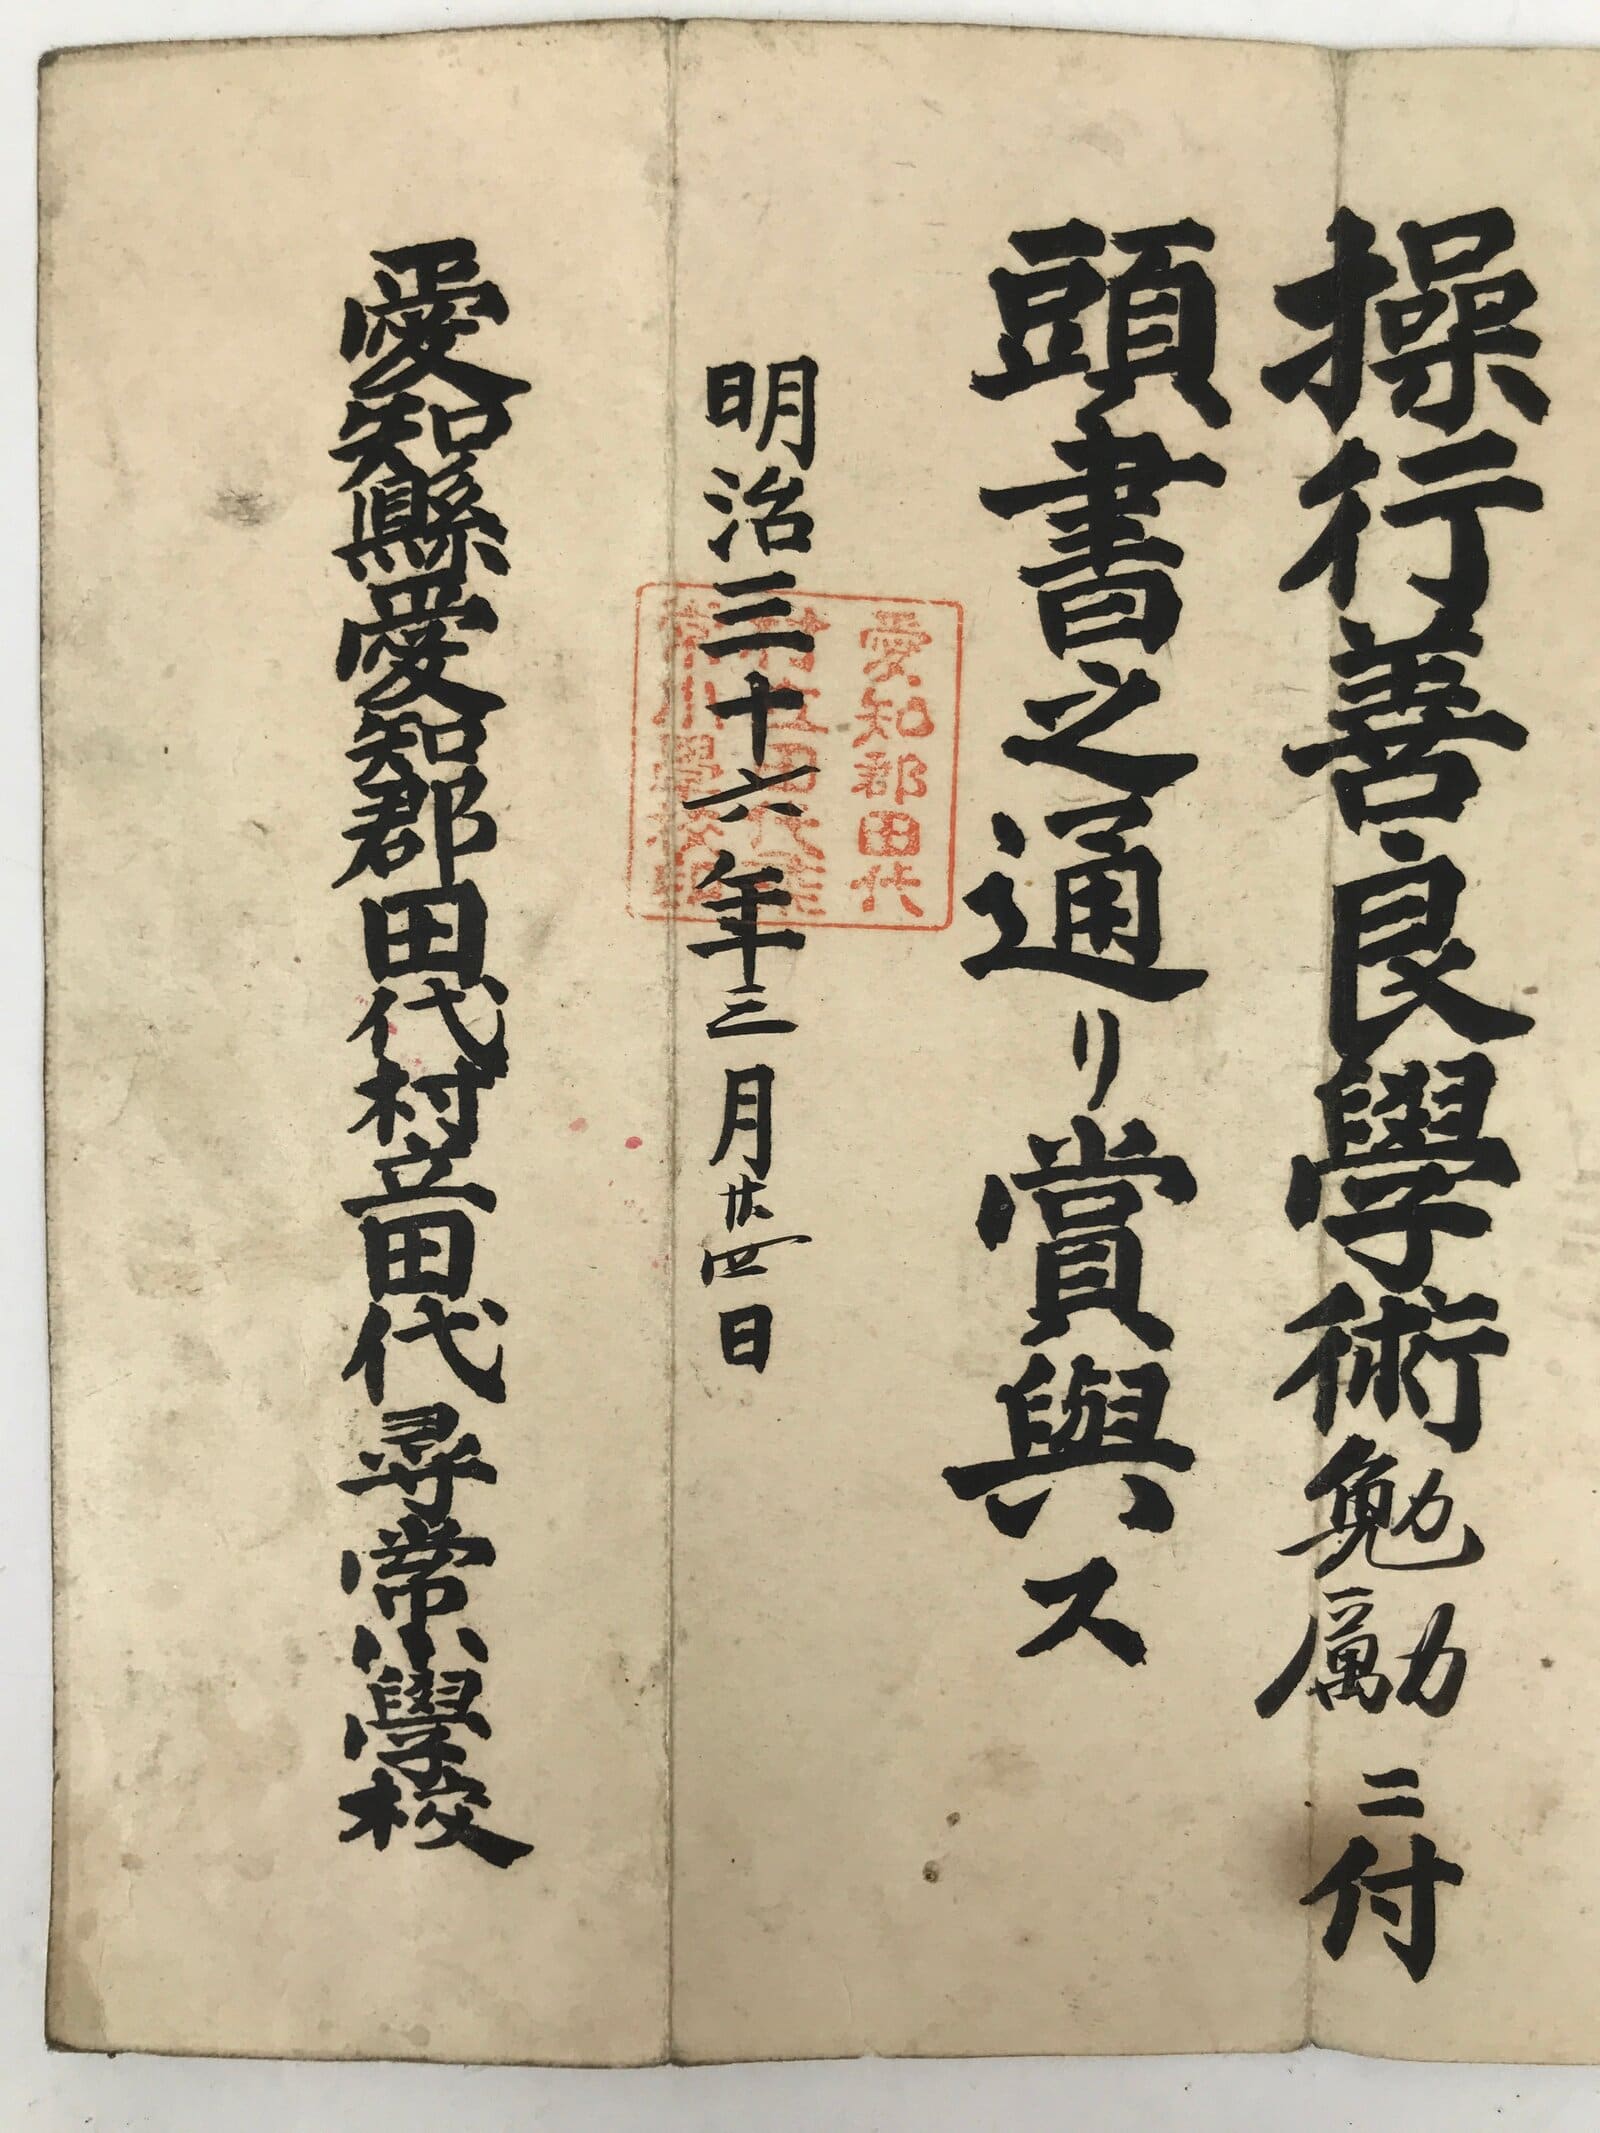 操行善良學術勉勵ニ付
頭書之通リ賞與ス
明治三十六年三月廿四日
愛知縣愛知郡田代村立田代尋常小學校
愛知郡田代
村立田代尋
常小學校印